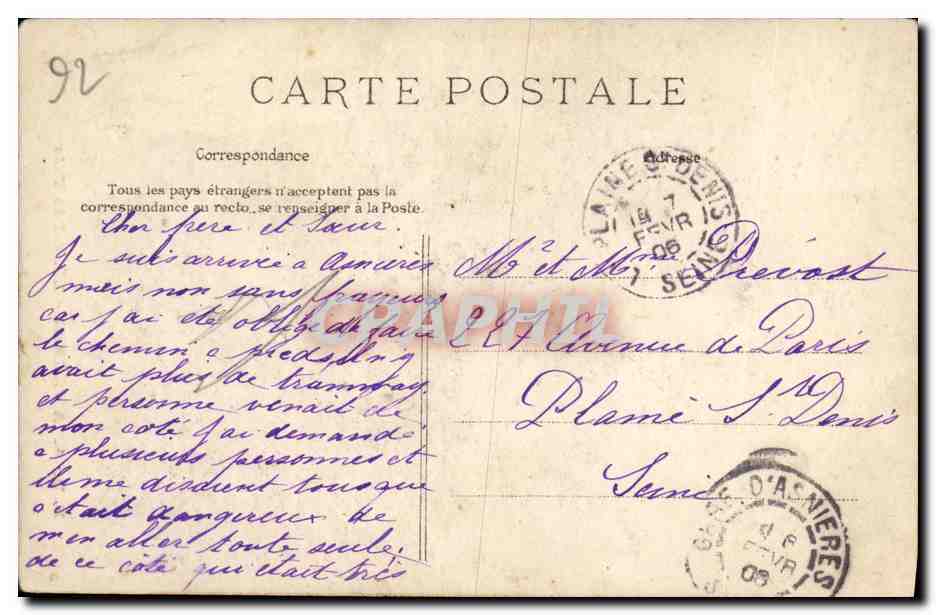 92
CARTE POSTALE
Correspondance
Tous les pays étrangers n'acceptent pas la
correspondance au recto, se renseigner à la Poste.
Cher frere et Sœur.
Je suis arrivée a Asnieres
mais non sans frayeurs
car j'ai eté obligé de faire
le chemin a pieds il n'y
avait plus de tramway.
et personne venait de
mon coté j'ai demandé
a plusieurs personnes et
il me disaient tous que
c'était dangereux de
m'en aller toute seule.
de ce coté qui était très
Adresse
PLAINE S. DENIS
7
FEVR
06
SEINE
Mr et Mme Prévost
227 Avenue de Paris
Plaine St Denis
Seine
GARE D'ASNIERES
6
FEVR
06
CPAPHIL